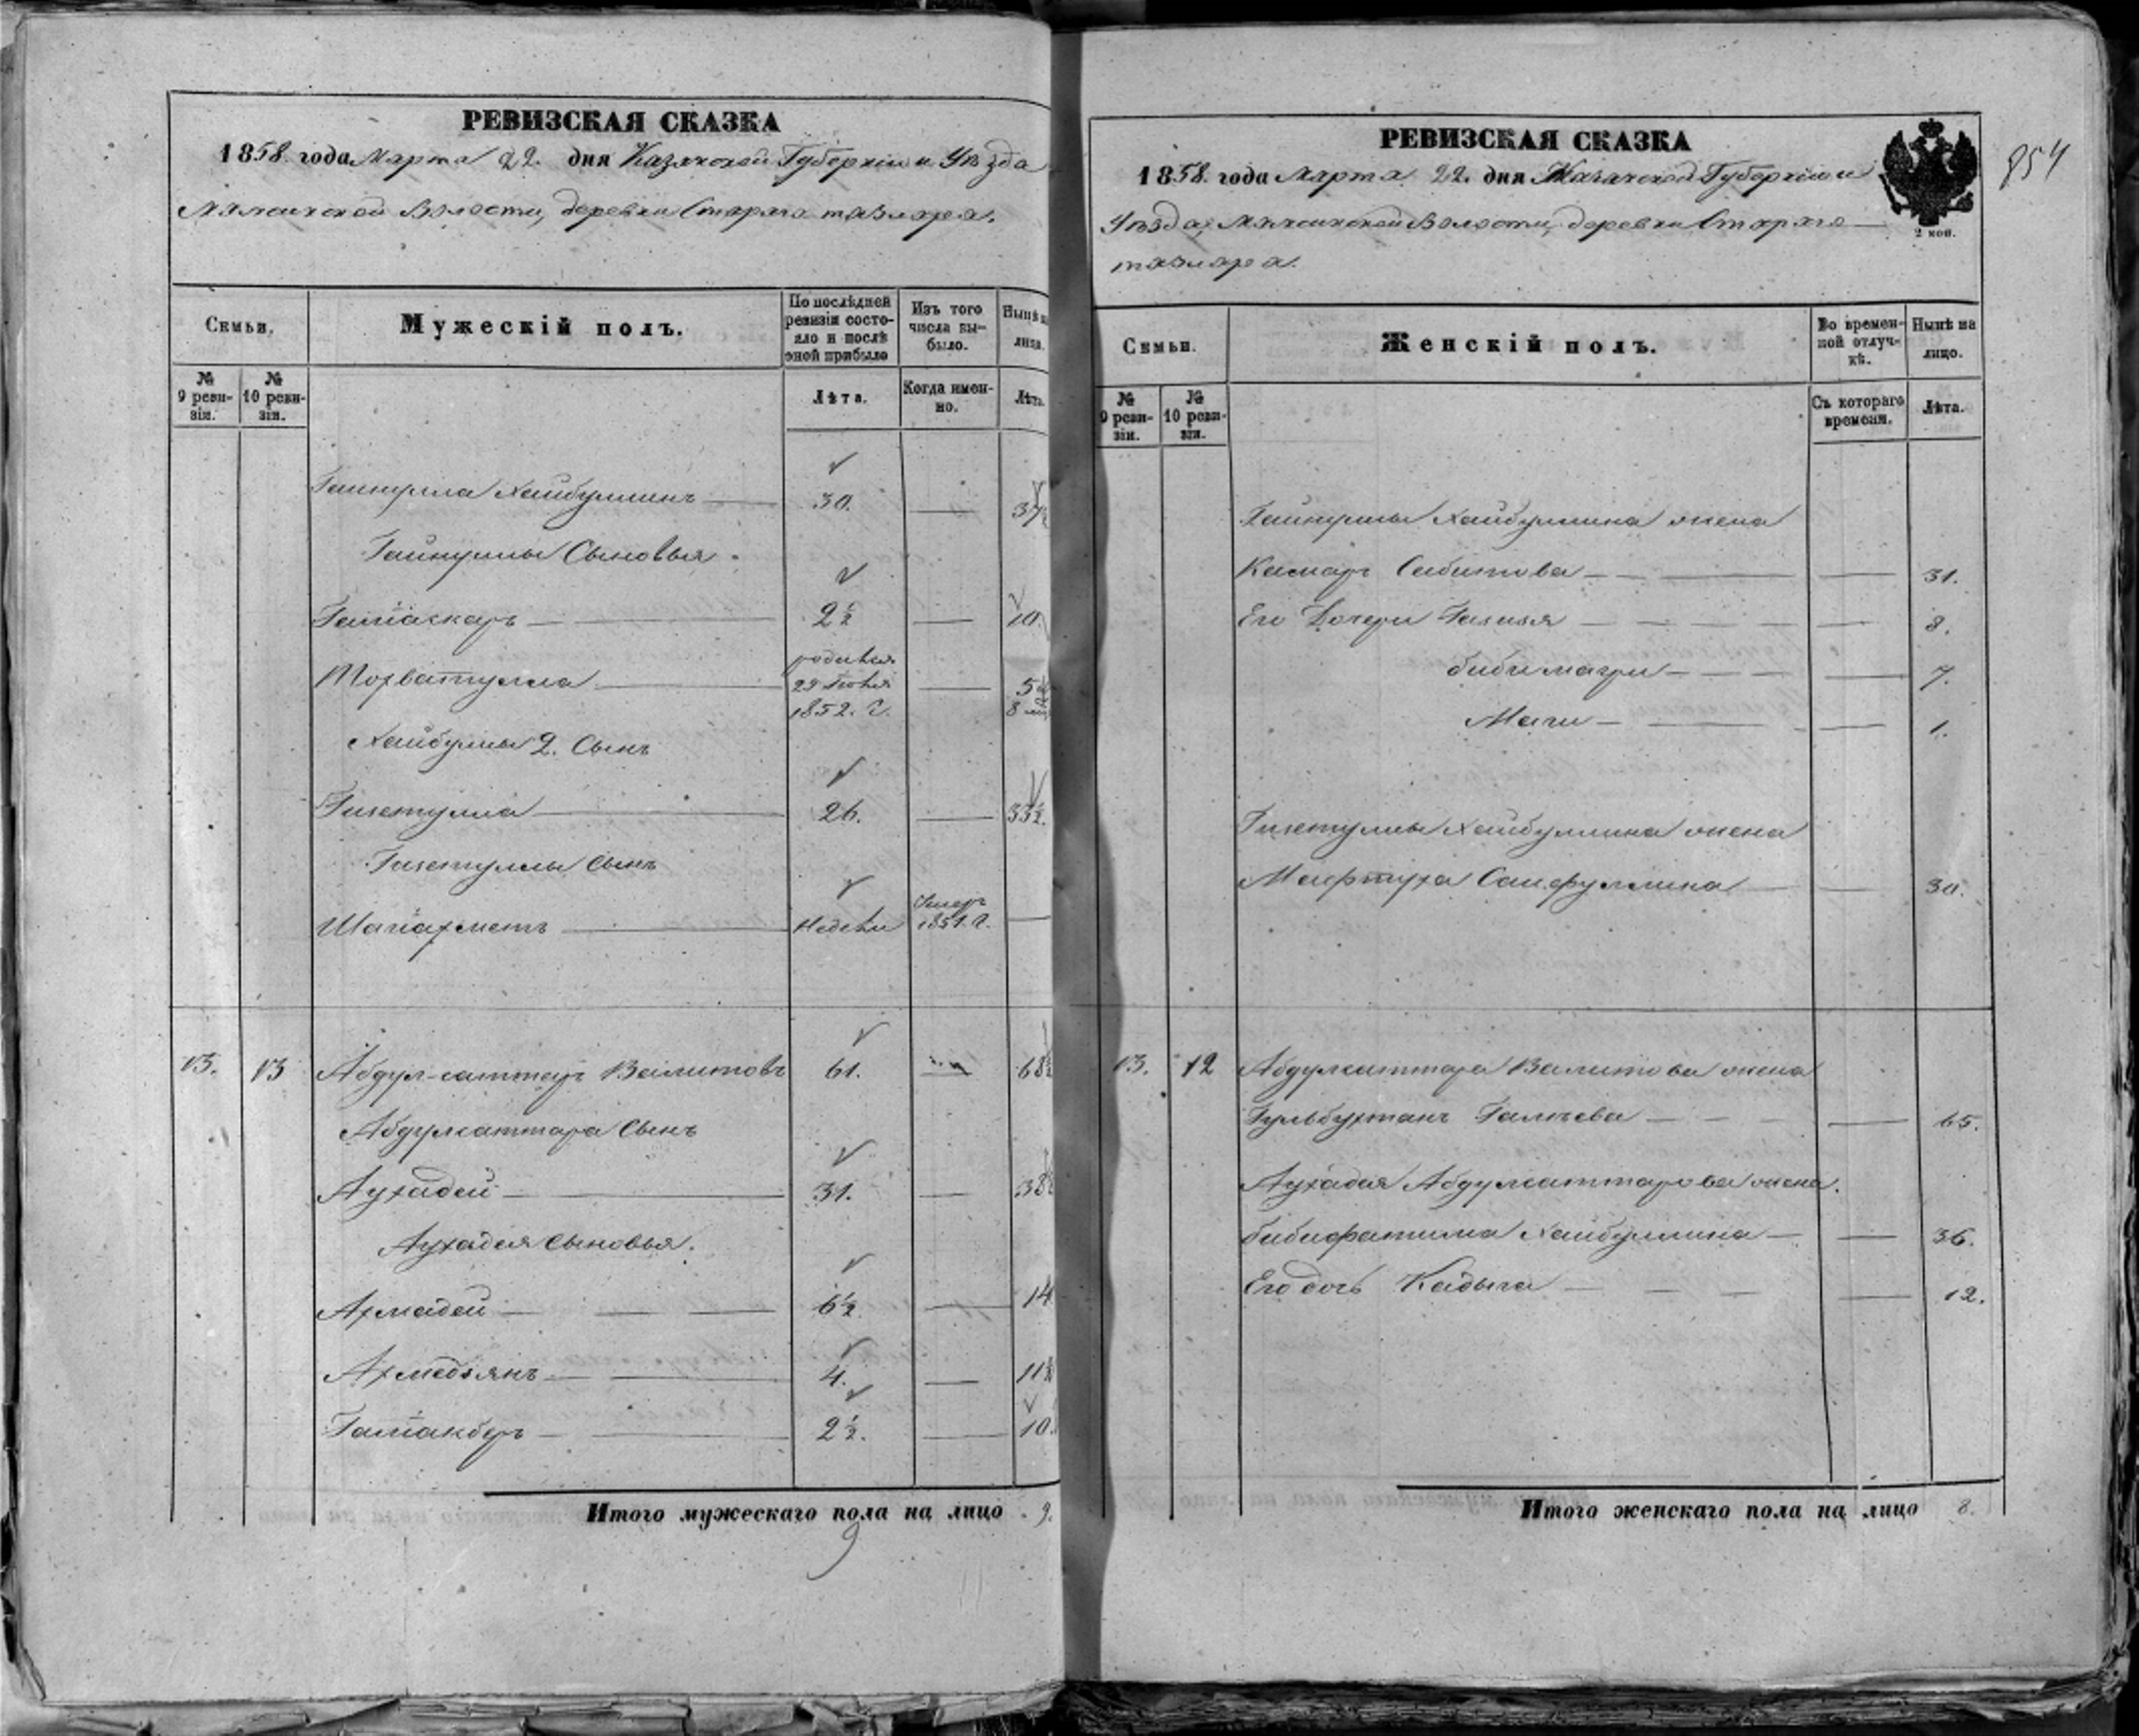 РЕВИЗСКАЯ СКАЗКА
1858 года Марта 22. дня Казанской Губернии и Уѣзда
волости, деревни Стараго
Семьи.
Мужескій полъ.
По послѣдней ревизіи состояло и послѣ оной прибыло
Изъ того числа выбыло.
Нынѣ на лицо.
№ 9 ревизіи.
№ 10 ревизіи.
Лѣта.
Когда именно.
Лѣта.
Гайнулла Хайбуллинъ 30. 37
Гайнуллы Сыновья
Галіаскаръ 2½ 10
родился
29 1852. г. 5 8
Хайбуллы 2. Сынъ
Гизетулла 26. 33½.
Гизетуллы Сынъ
Шагіахметъ Недели Умеръ 1851. г.
13. 13 Абдул-саттаръ Валитовъ 61. 68½
Абдулсаттара Сынъ
Аухадей 31. 38½
Аухадея Сыновья.
Ахмадей 6½ 14
Ахмедзянъ 4. 11½
Галіакберъ 2½. 10.
Итого мужескаго пола на лицо 9.
9
РЕВИЗСКАЯ СКАЗКА
1858. года Марта 22. дня Казанской Губерніи и
Уѣзда, Волости, деревни Стараго
2 коп.
854
Семьи.
Женскій полъ.
Во временной отлучкѣ.
Нынѣ на лицо.
№ 9 ревизіи.
№ 10 ревизіи.
Съ котораго времени.
Лѣта.
Гайнуллы Хайбуллина жена
Камаръ Сабитова 31.
Его Дочери 8.
7.
1.
Гизетуллы Хайбуллина жена
Сайфуллина 30.
13. 12 Абдулсаттара Валитова жена
65.
Аухадея Абдулсаттарова жена.
бибифатима Хайбуллина 36.
Его дочь Кадыча 12.
Итого женскаго пола на лицо 8.